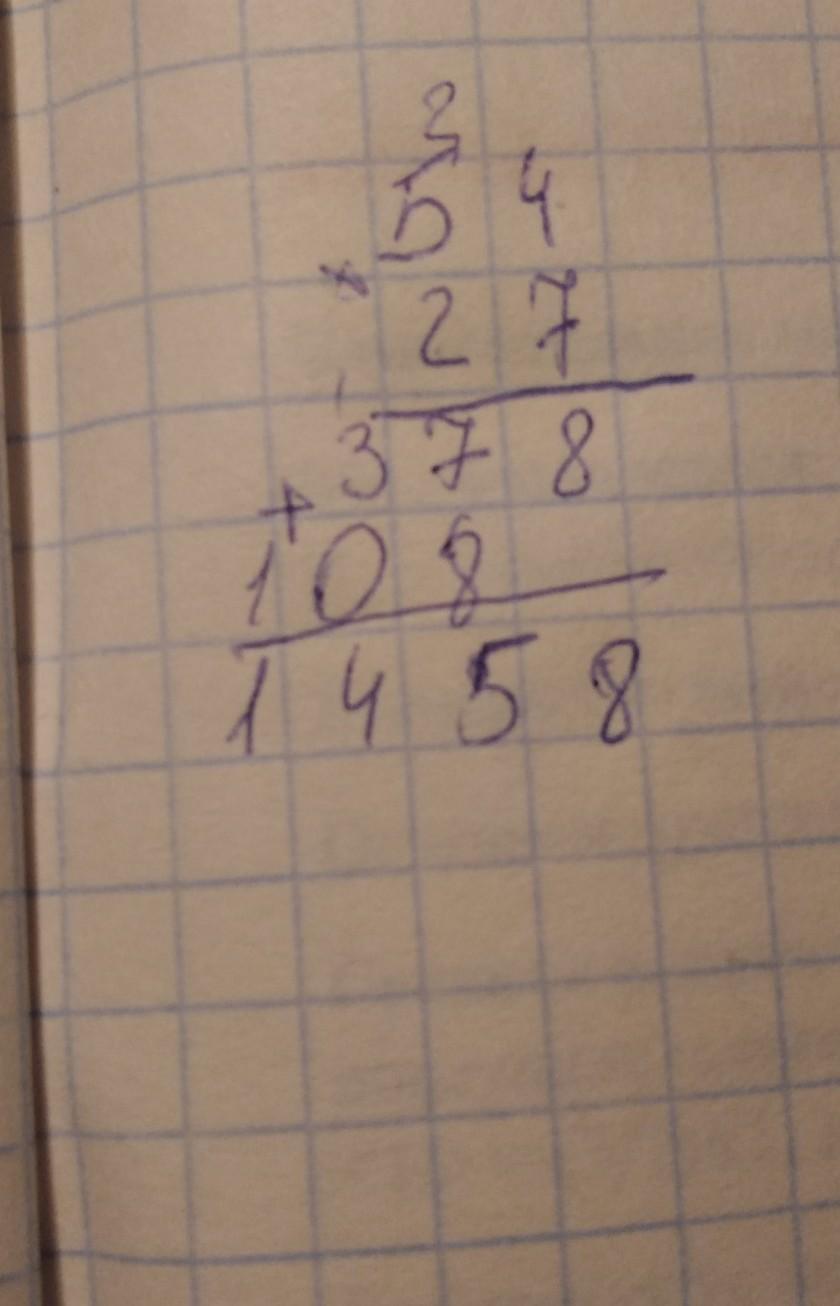 2
5 4
×
2 7
1
3 7 8
+
1 0 8
1 4 5 8